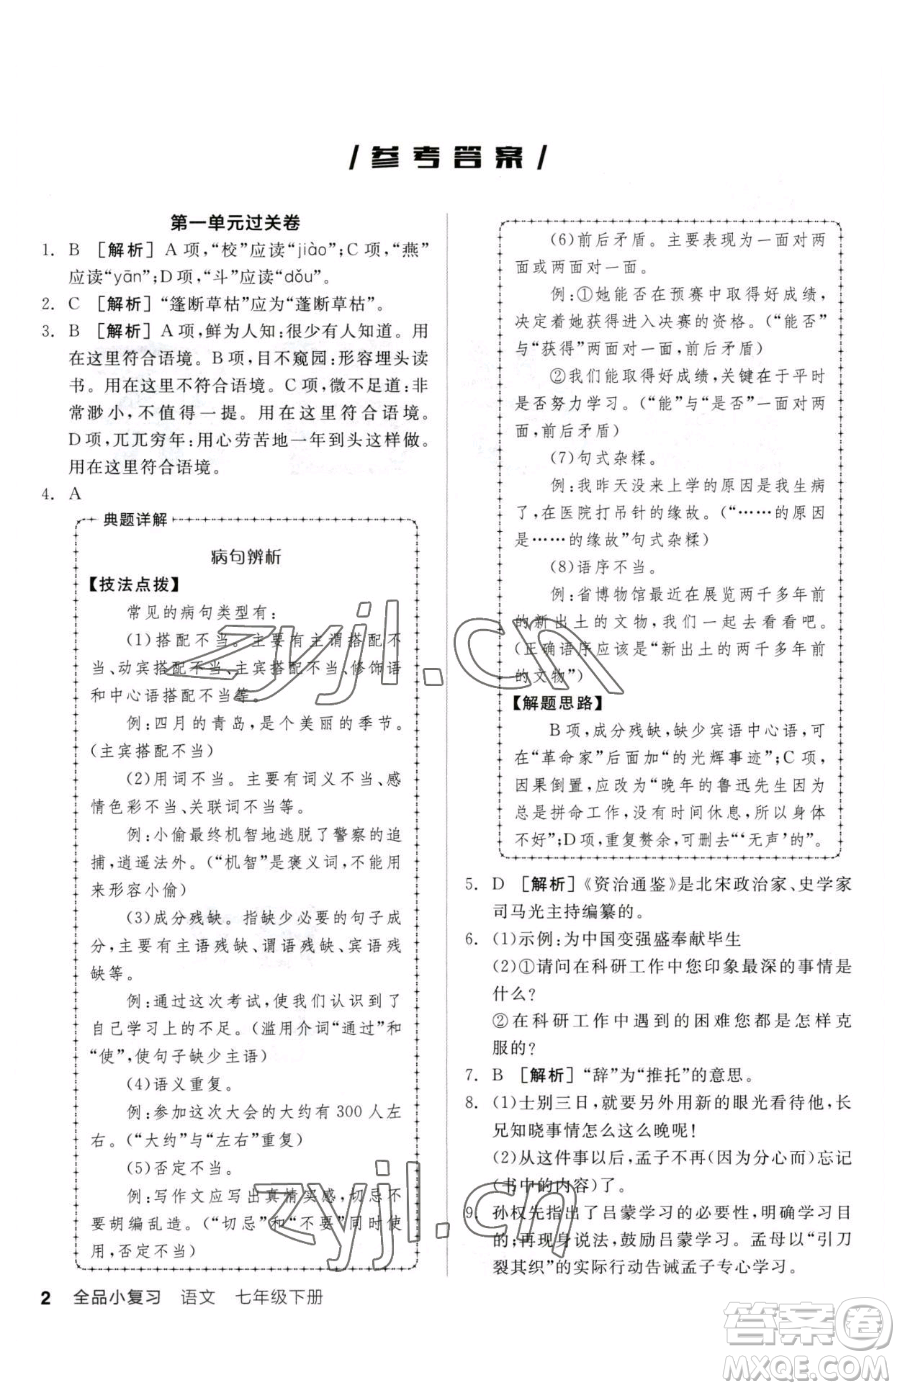 参考答案
第一单元过关卷
1. B [解析] A 项,“校”应读“jiào”;C 项,“燕”
应读“yān”;D 项,“斗”应读“dǒu”。
2. C [解析] “篷断草枯”应为“蓬断草枯”。
3. B [解析] A 项,鲜为人知:很少有人知道。用
在这里符合语境。B 项,目不窥园:形容埋头读
书。用在这里不符合语境。C 项,微不足道:非
常渺小,不值得一提。用在这里符合语境。
D 项,兀兀穷年:用心劳苦地一年到头这样做。
用在这里符合语境。
4. A
典题详解
病句辨析
【技法点拨】
常见的病句类型有:
(1)搭配不当。主要有主谓搭配不
当、动宾搭配不当、主宾搭配不当、修饰语
和中心语搭配不当等。
例:四月的青岛,是个美丽的季节。
(主宾搭配不当)
(2)用词不当。主要有词义不当、感
情色彩不当、关联词不当等。
例:小偷最终机智地逃脱了警察的追
捕,逍遥法外。(“机智”是褒义词,不能用
来形容小偷)
(3)成分残缺。指缺少必要的句子成
分,主要有主语残缺、谓语残缺、宾语残
缺等。
例:通过这次考试,使我们认识到了
自己学习上的不足。(滥用介词“通过”和
“使”,使句子缺少主语)
(4)语义重复。
例:参加这次大会的大约有 300 人左
右。(“大约”与“左右”重复)
(5)否定不当。
例:写作文应写出真情实感,切忌不
要胡编乱造。(“切忌”和“不要”同时使
用,否定不当)
(6)前后矛盾。主要表现为一面对两
面或两面对一面。
例:①她能否在预赛中取得好成绩,
决定着她获得进入决赛的资格。(“能否”
与“获得”两面对一面,前后矛盾)
②我们能取得好成绩,关键在于平时
是否努力学习。(“能”与“是否”一面对两
面,前后矛盾)
(7)句式杂糅。
例:我昨天没来上学的原因是我生病
了,在医院打吊针的缘故。(“……的原因
是……的缘故”句式杂糅)
(8)语序不当。
例:省博物馆正在展览两千多年前
新出土的文物,我们一起去看看吧。
(正确语序应该是“新出土的两千多年前
的文物”)
【解题思路】
B 项,成分残缺,缺少宾语中心语,可
在“革命家”后面加“的光辉事迹”;C 项,
因果倒置,应改为“晚年的鲁迅先生因为
总是拼命工作,没有时间休息,所以身体
不好”;D 项,重复赘余,可删去“‘无声’的”。
5. D [解析]《资治通鉴》是北宋政治家、史学家
司马光主持编纂的。
6. (1)示例:为中国变强盛奉献毕生
(2)①请问在科研工作中您印象最深的事情是
什么?
②在科研工作中遇到的困难您都是怎样克
服的?
7. B [解析] “辞”为“推托”的意思。
8. (1)士别三日,就要另外用新的眼光看待他,长
兄知晓事情怎么这么晚呢!
(2)从这件事以后,孟子不再(因为分心而)忘记
(书中的内容)了。
9. 孙权先指出了吕蒙学习的必要性,明确学习目
的;再现身说法,鼓励吕蒙学习。孟母以“引刀
裂其织”的实际行动告诫孟子专心学习。
2 全品小复习 语文 七年级下册
zyjl.cn
zyjl.cn
答案圈
MXQE.COM